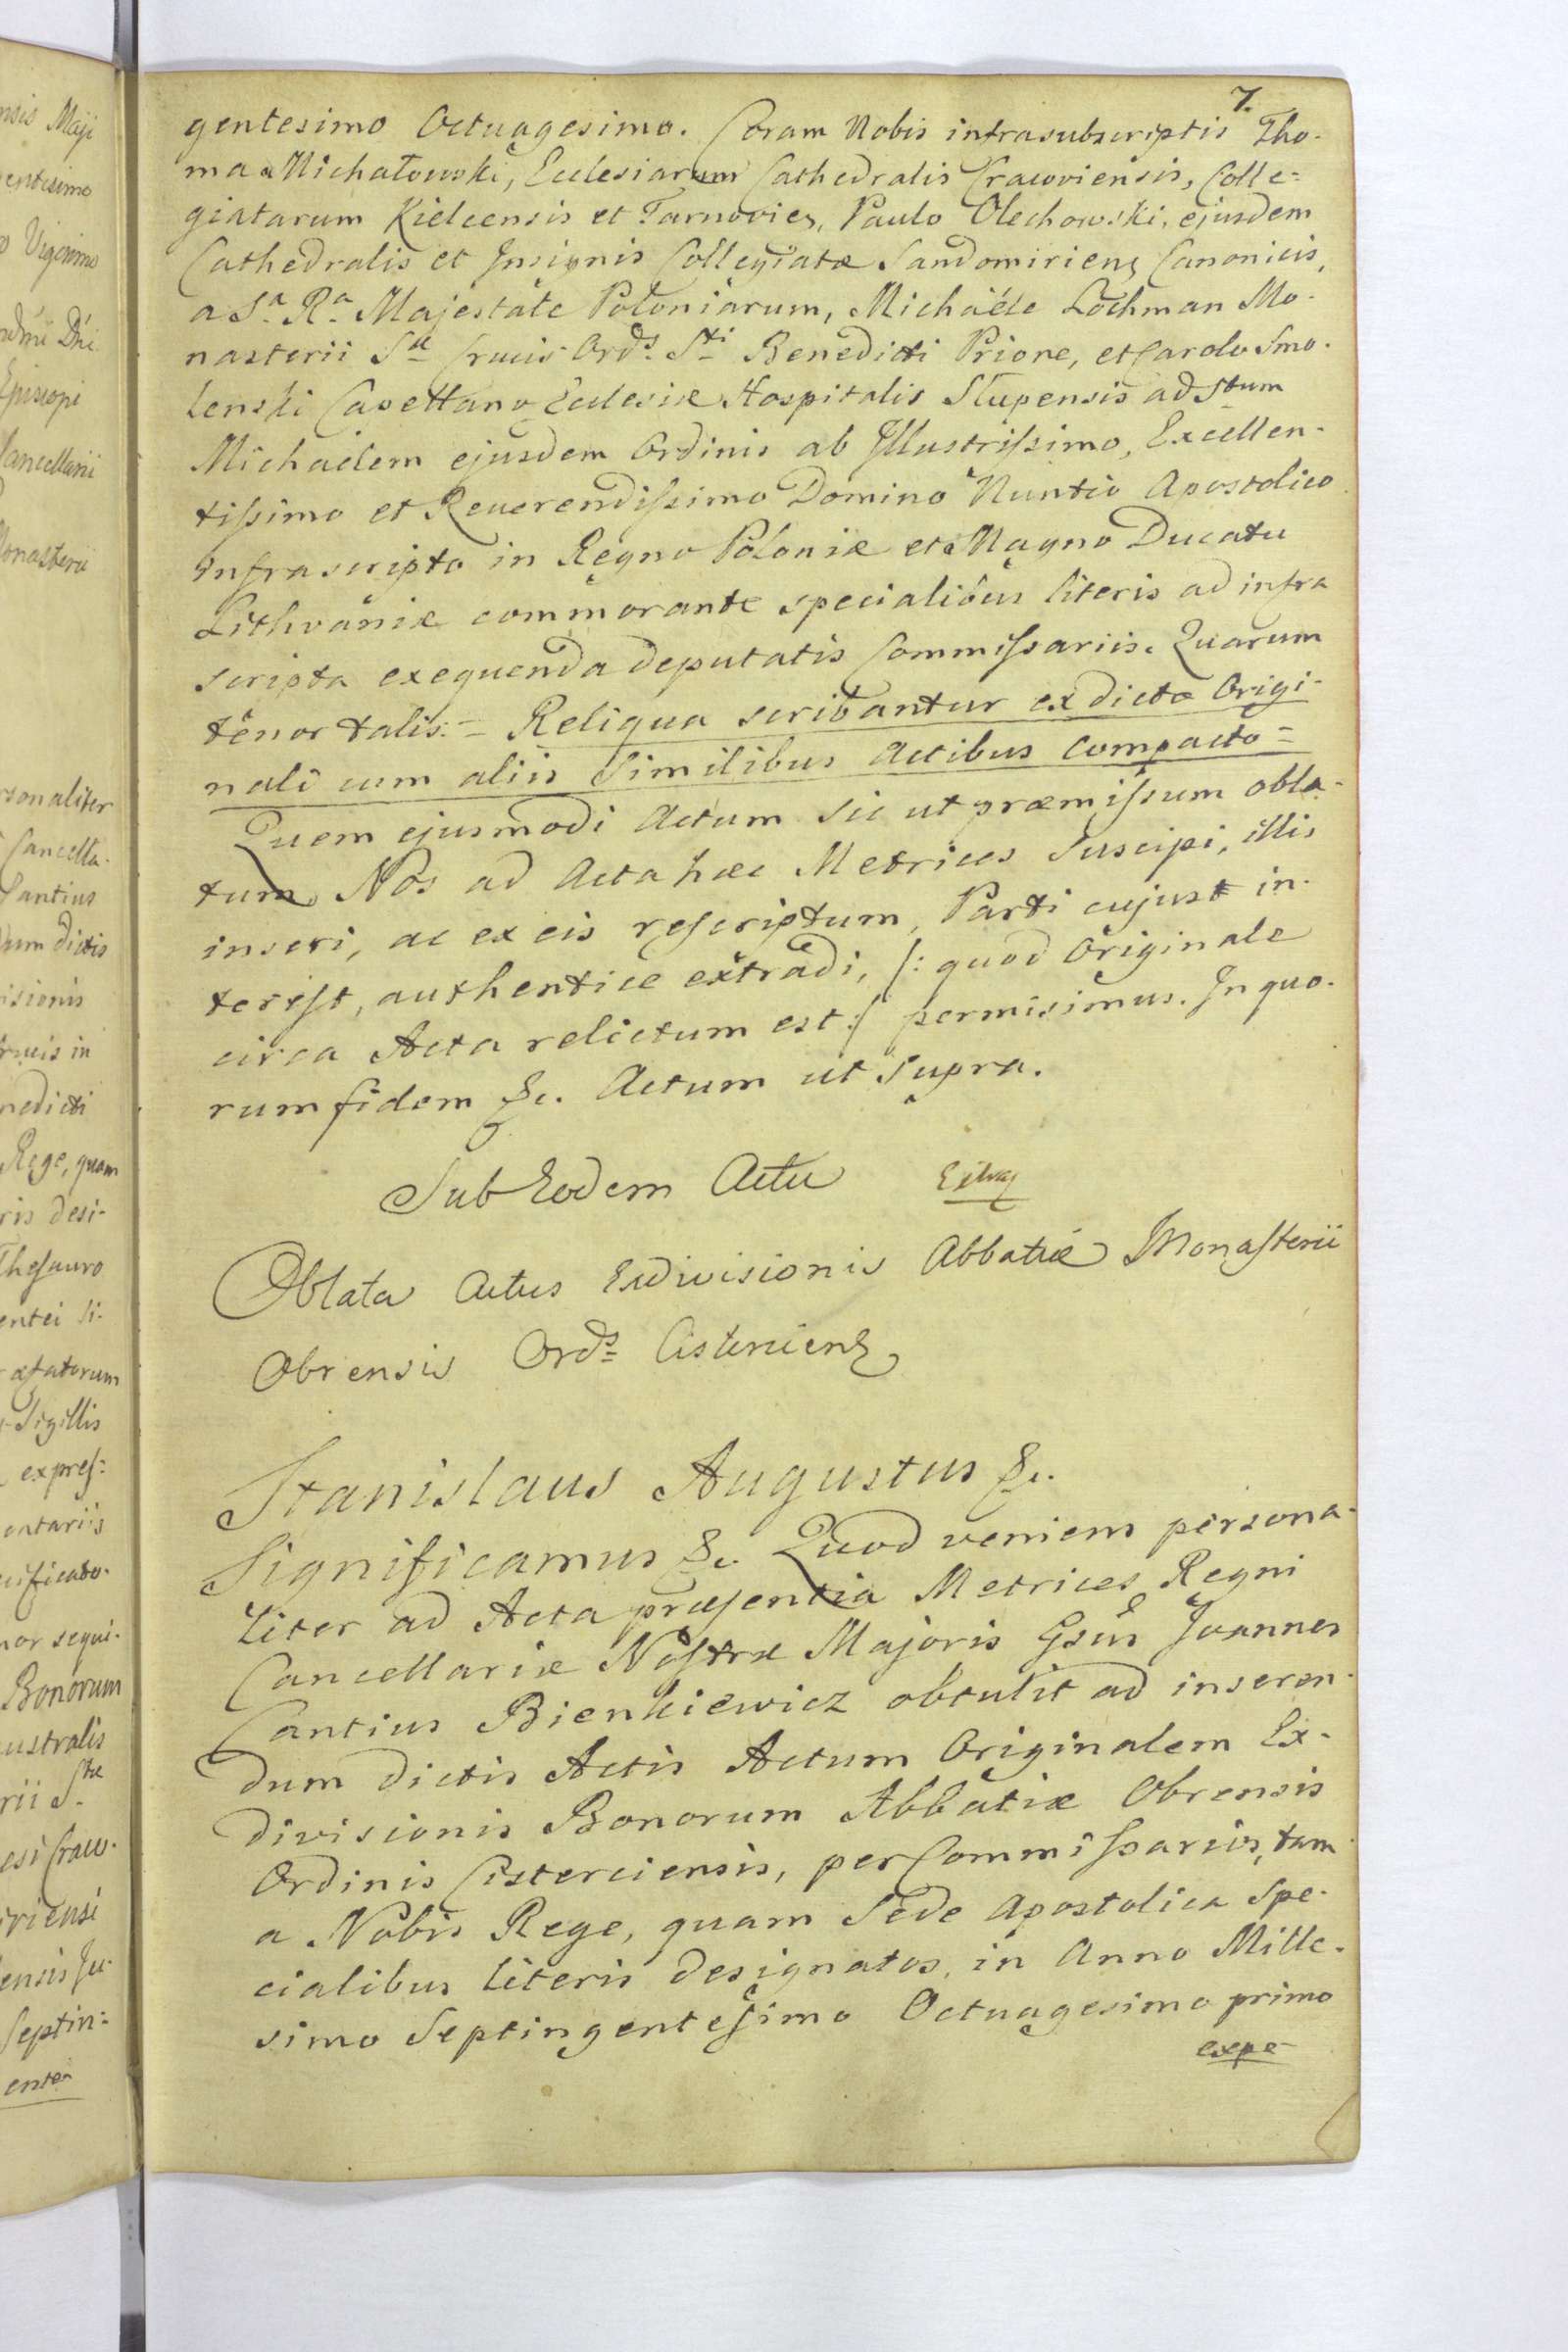 7.
gentesimo Octuagesimo. Coram Nobis infrasubscriptis Tho-
ma Michałowski, Ecclesiarum Cathedralis Cracoviensis, Colle=
giatarum Kielcensis et Tarnovien, Paulo Olechowski, ejusdem
Cathedralis et Insignis Collegiatæ Sandomirien Canonicis,
a Sa. Ra. Majestate Poloniarum, Michaële Lochman Mo-
nasterii Stæ Crucis Ords. Sti Benedicti Priore, et Carolo Smo-
lenski Capellano Ecclesiæ Hospitalis Slupensis ad Stum
Michaelem ejusdem Ordinis ab Illustrissimo, Excellen-
tissimo et Reverendissimo Domino Nuntio Apostolico
infrascripto in Regno Poloniæ et Magno Ducatu
Lithvaniæ commorante specialibus literis ad infra
scripta exequenda deputatis Commissariis. Quarum
tenor talis: = Reliqua scribantur ex dicto Origi-
nali cum aliis Similibus Actibus compacto =
Quem ejusmodi Actum sic ut præmissum obla-
tum Nos ad Acta hæc Metrices Suscipi, illis
inseri, ac ex eis rescriptum, Parti cujust in-
terest, authentice extradi, /: quod Originale
circa Acta relictum est :/ permisimus. In quo-
rum fidem &c. Actum ut Supra.
Sub Eodem Actu
Oblata Actus Exdivisionis Abbatiæ Monasterii
Obrensis Ords= Cisterciens
Stanislaus Augustus &c.
Significamus &c. Quod veniens persona-
liter ad Acta præsentia Metrices Regni
Cancellariæ Nostræ Majoris Gsus Joannes
Cantius Bienkiewicz obtulit ad inseren-
dum dictis Actis Actum Originalem Ex-
divisionis Bonorum Abbatiæ Obrensis
Ordinis Cisterciensis, per Commissarios, tam
a Nobis Rege, quam Sede Apostolica Spe-
cialibus literis designatos, in Anno Mille-
simo Septingentesimo Octuagesimo primo
expe-